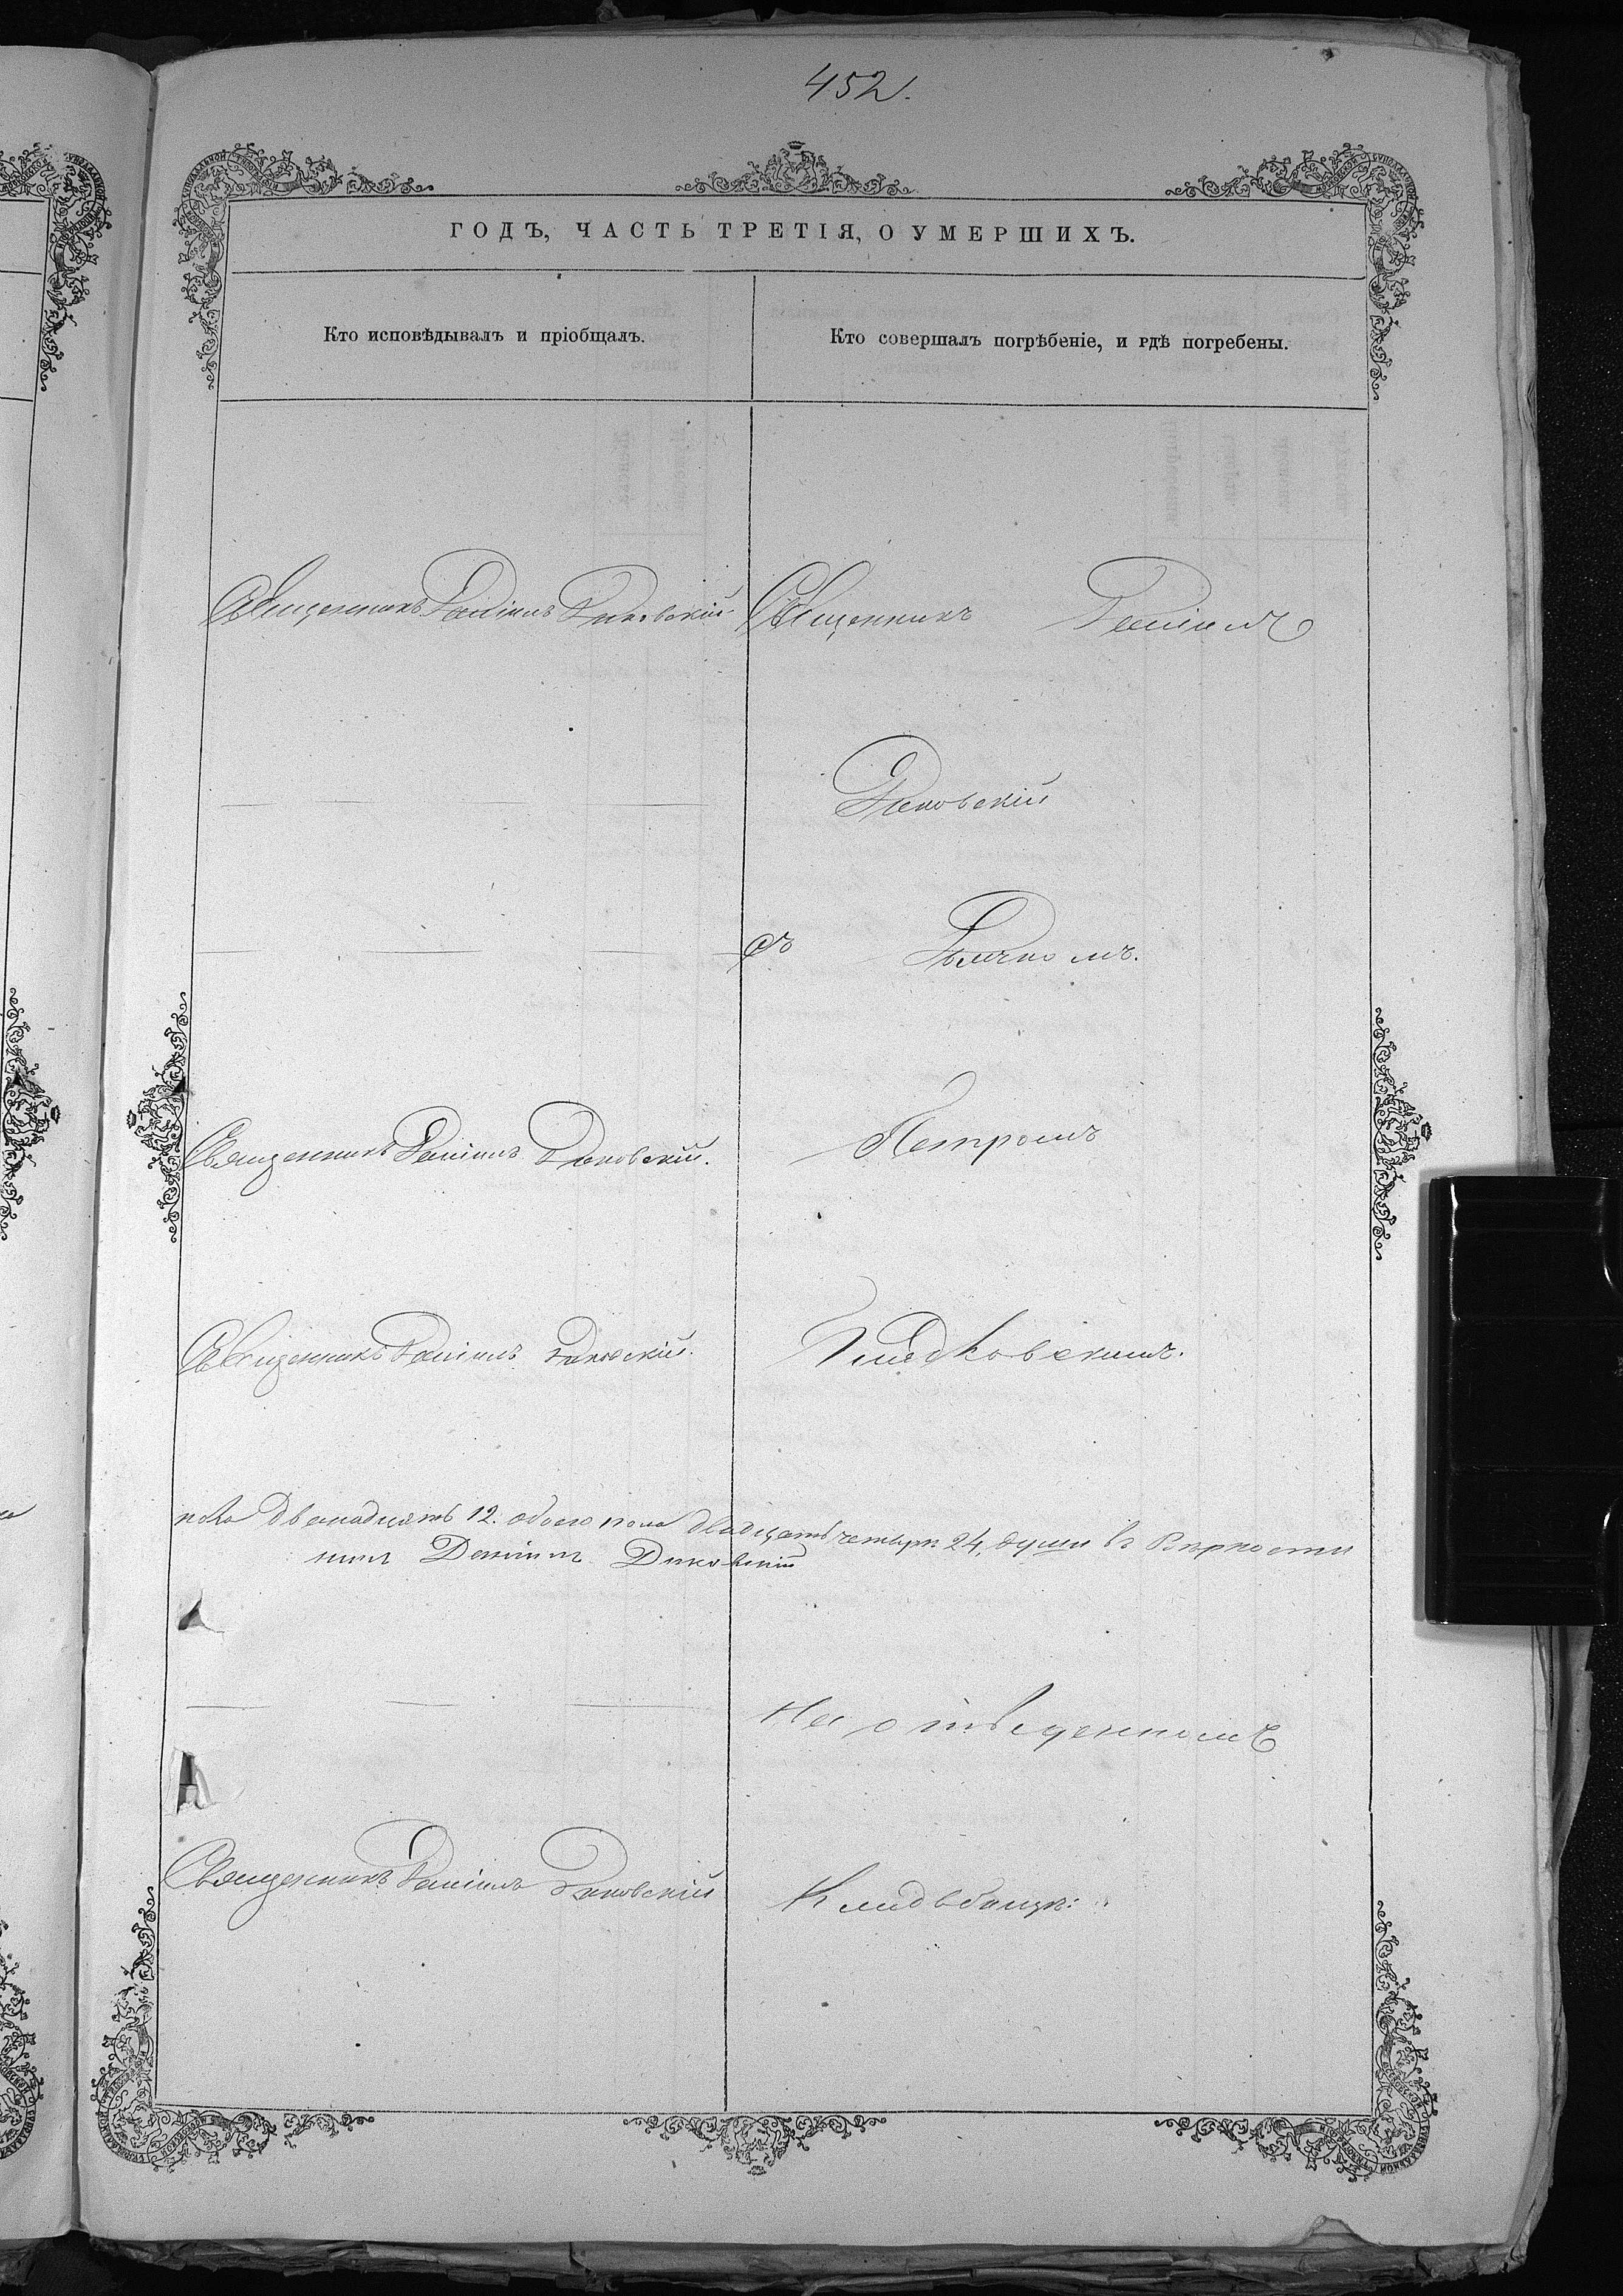 452.
ГОДЪ, ЧАСТЬ ТРЕТІЯ, О УМЕРШИХЪ.
Кто исповѣдывалъ и пріобщалъ.
Кто совершалъ погрѣбеніе, и гдѣ погребены.
Священникъ Даніилъ Диковскій.
Священникъ Даніилъ
Диковскій
съ Дьячкомъ.
Священникъ Даніилъ Диковскій.
Петромъ
Священникъ Даніилъ Диковскій.
пола двенадцать 12. обоего пола двадцать четыре 24, души въ Верности
Даніилъ Диковскій
На отведенномъ
Священникъ Даніилъ Диковскій
Кладбищѣ: